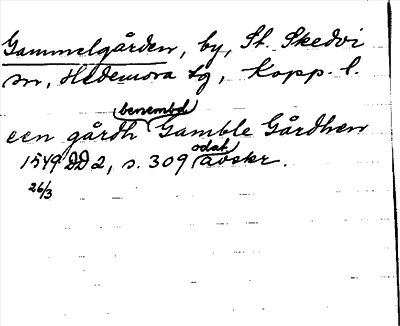 Gammelgården, by, St. Skedvi
sn, Hedemora tg, Kopp. l.
benembd
een gårdh Gamble Gårdhen
odat.
1549 DD 2, s. 309 avskr.
26/3